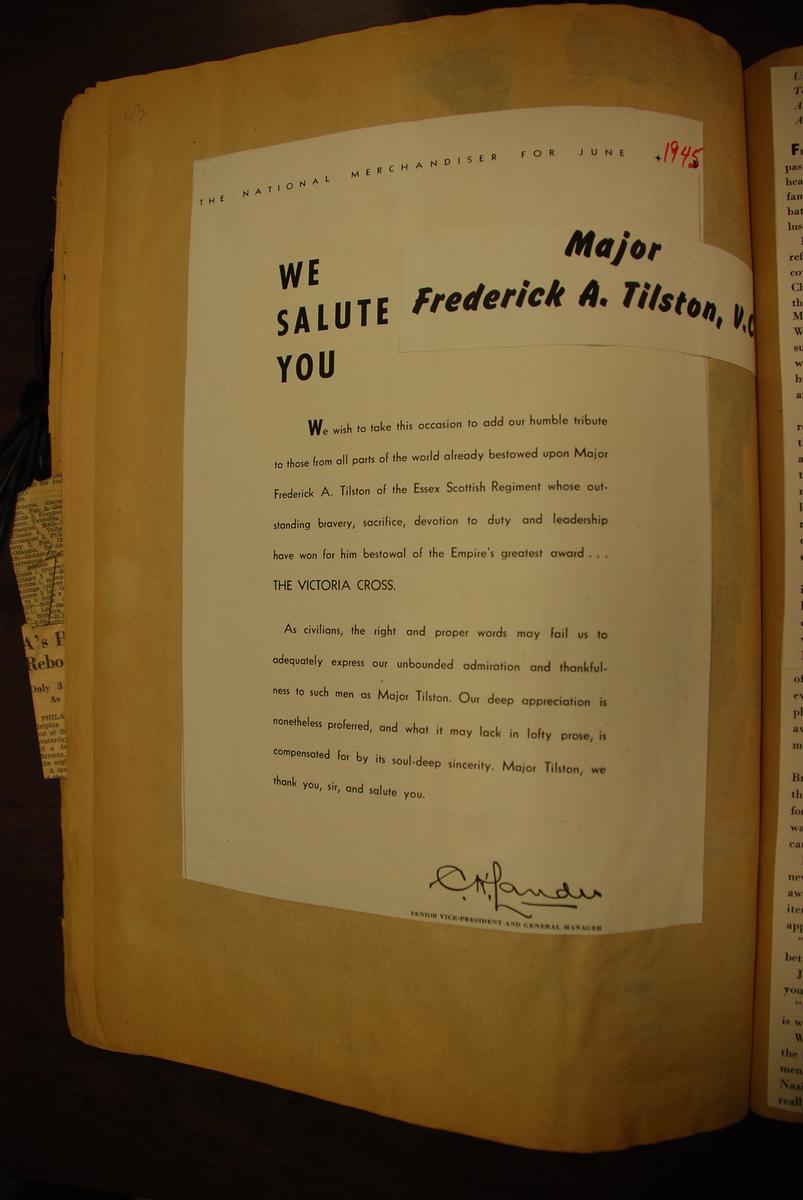 THE NATIONAL MERCHANDISER FOR JUNE 1945
WE
SALUTE
YOU
Major
Frederick A. Tilston, V.C
We wish to take this occasion to add our humble tribute
to those from all parts of the world already bestowed upon Major
Frederick A. Tilston of the Essex Scottish Regiment whose out-
standing bravery, sacrifice, devotion to duty and leadership
have won for him bestowal of the Empire's greatest award . . .
THE VICTORIA CROSS.
As civilians, the right and proper words may fail us to
adequately express our unbounded admiration and thankful-
ness to such men as Major Tilston. Our deep appreciation is
nonetheless proferred, and what it may lack in lofty prose, is
compensated for by its soul-deep sincerity. Major Tilston, we
thank you, sir, and salute you.
C.H. Lander
SENIOR VICE-PRESIDENT AND GENERAL MANAGER
A's
Rebo
Only 3
As
PHILA